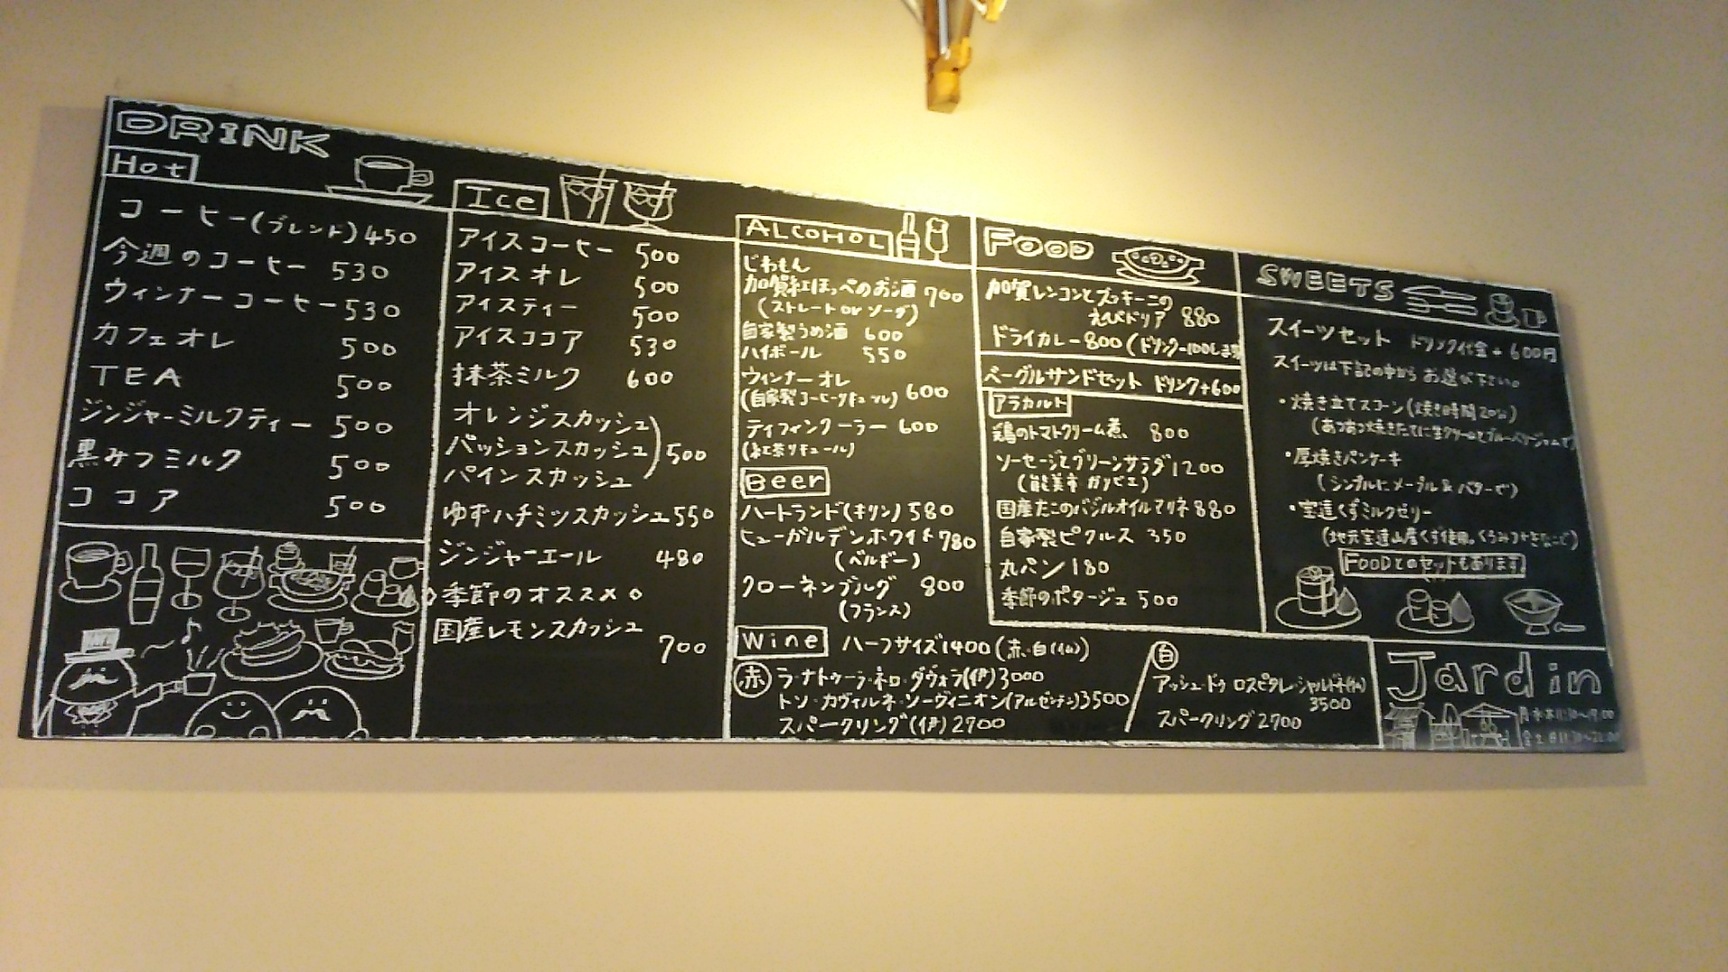 DRINK
Hot
コーヒー(ブレンド) 450
今週のコーヒー 530
ウィンナーコーヒー 530
カフェオレ 500
TEA 500
ジンジャーミルクティー 500
黒みつミルク 500
ココア 500
Ice
アイスコーヒー 500
アイスオレ 500
アイスティー 500
アイスココア 530
抹茶ミルク 600
オレンジスカッシュ
パッションスカッシュ 500
パインスカッシュ
ゆずハチミツスカッシュ 550
ジンジャーエール 480
◇季節のオススメ◇
国産レモンスカッシュ
700
ALCOHOL
じわもん
加賀紅ほっぺのお酒 700
(ストレート or ソーダ)
自家製うめ酒 600
ハイボール 550
ウィンナーオレ
(自家製コーヒーリキュール) 600
ティフィンクーラー 600
(紅茶リキュール)
Beer
ハートランド(キリン) 580
ヒューガルデンホワイト 780
(ベルギー)
クローネンブルグ 800
(フランス)
Wine ハーフサイズ1400(赤・白(仏))
赤 ラ・ナトゥーラ・ネロ・ダヴォラ(伊)3000
トソ・カヴィルネ・ソーヴィニオン(アルゼンチン)3500
スパークリング(伊)2700
白
アッシュ・ドゥ ロスピタレ・シャルドネ(仏)
3500
スパークリング2700
FOOD
加賀レンコンとズッキーニの
えびドリア 880
ドライカレー800(ドリンク-100します
ベーグルサンドセット ドリンク+600
アラカルト
鶏のトマトクリーム煮 800
ソーセージとグリーンサラダ1200
(能美市 ガリビエ)
国産たこのバジルオイルマリネ 880
自家製ピクルス 350
丸パン 180
季節のポタージュ 500
SWEETS
スイーツセット ドリンク代金+600円
スイーツは下記の中から お選び下さい。
・焼き立てスコーン(焼き時間20分)
(あつあつ焼きたてに生クリームとブルーベリージャムで)
・厚焼きパンケーキ
(シンプルにメープル&バターで)
・宝達くずミルクゼリー
(地元宝達山産くず使用。くろみつときなこで)
FOODとのセットもあります
Jardin